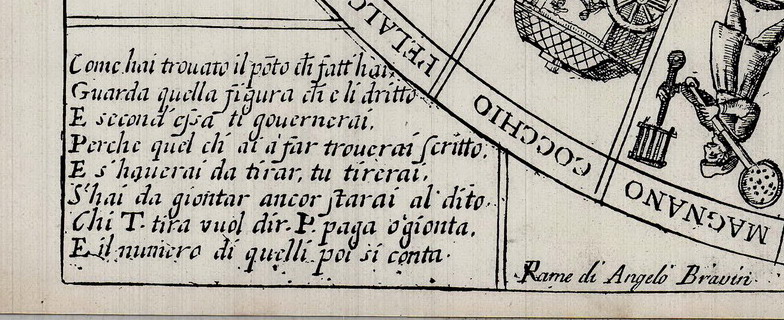 Come hai trouato il põto ch̃ fatt'hai,
Guarda quella figura ch̃ e li dritto
E second' essa ti gouernerai,
Perche quel ch' ai a far trouerai scritto;
E s'hauerai da tirar, tu tirerai,
S'hai da giontar ancor starai al dito.
Chi T. tira vuol dir. P. paga o gionta,
E il numero di quelli poi si conta.
PELALC
COCCHIO
MAGNANO
Rame di Angelo Bravini